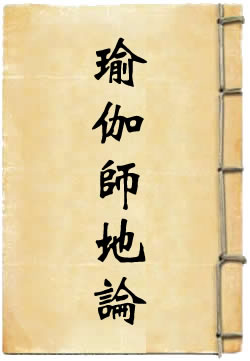 瑜伽師地論